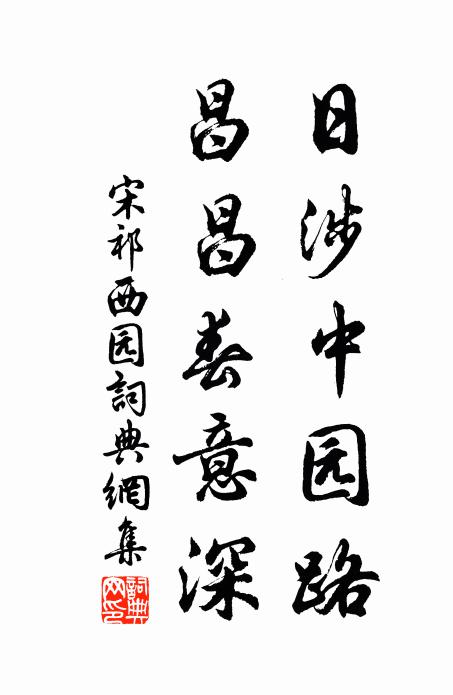 日涉中园路
昌昌春意深
宋祁西园詞典網集
詞典网印